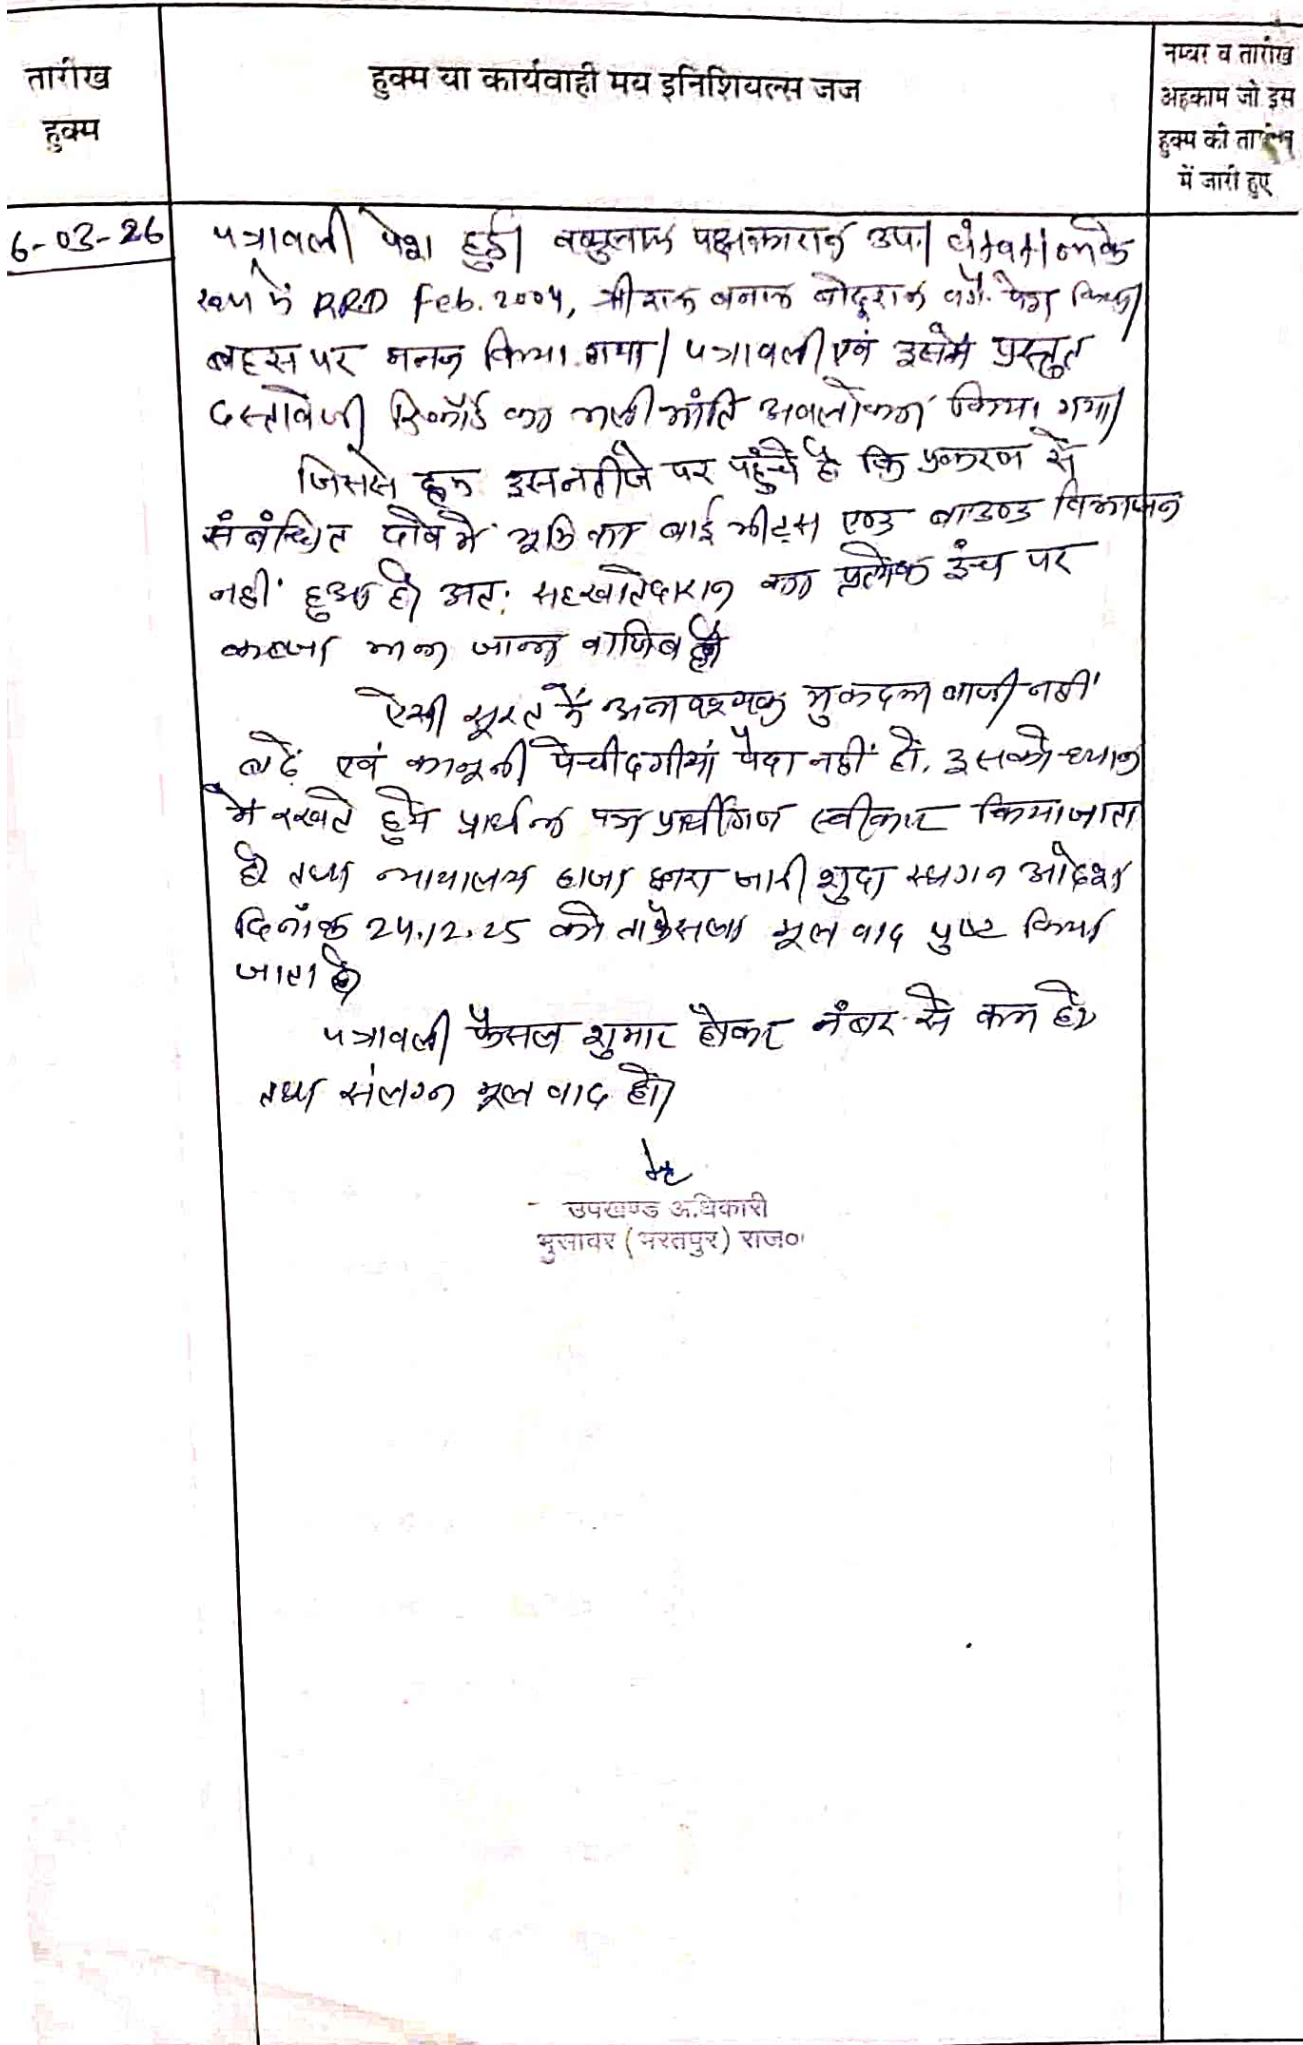 तारीख
हुक्म
हुक्म या कार्यवाही मय इनिशियल्स जज
नम्बर व तारीख
अहकाम जो इस
हुक्म की
में जारी हुए
6-03-26
पत्रावली पेश हुई। पक्षकारान उप।
RRD Feb. 2004, श्रीराम बनाम पेश किया।
बहस पर मनन किया गया। पत्रावली एवं इसमें प्रस्तुत
दस्तावेजी रिकॉर्ड का भली भांति अवलोकन किया गया।
जिससे हम इस नतीजे पर पहुंचे है कि प्रकरण से
संबंधित भूमि का बाई मीट्स एण्ड बाउण्ड विभाजन
नहीं हुआ है। अत: सहखातेदारान का प्रत्येक इंच पर
कब्जा माना जाना वाजिब है।
ऐसी सूरत में अनावश्यक मुकदमा बाजी नहीं
बढे एवं कानूनी पेचीदगीयां पैदा नहीं हों, इसको ध्यान
मे रखते हुये प्रार्थना पत्र प्रार्थीगण स्वीकार किया जाता
है तथा न्यायालय हाजा द्वारा जारी शुदा स्थगन आदेश
दिनाँक 24.12.25 को ताफैसला मूल वाद पुष्ट किया
जाता है।
पत्रावली फैसल शुमार होकर नंबर से कम हो
तथा संलग्न मूल वाद हो।
उपखण्ड अधिकारी
भुसावर (भरतपुर) राज०